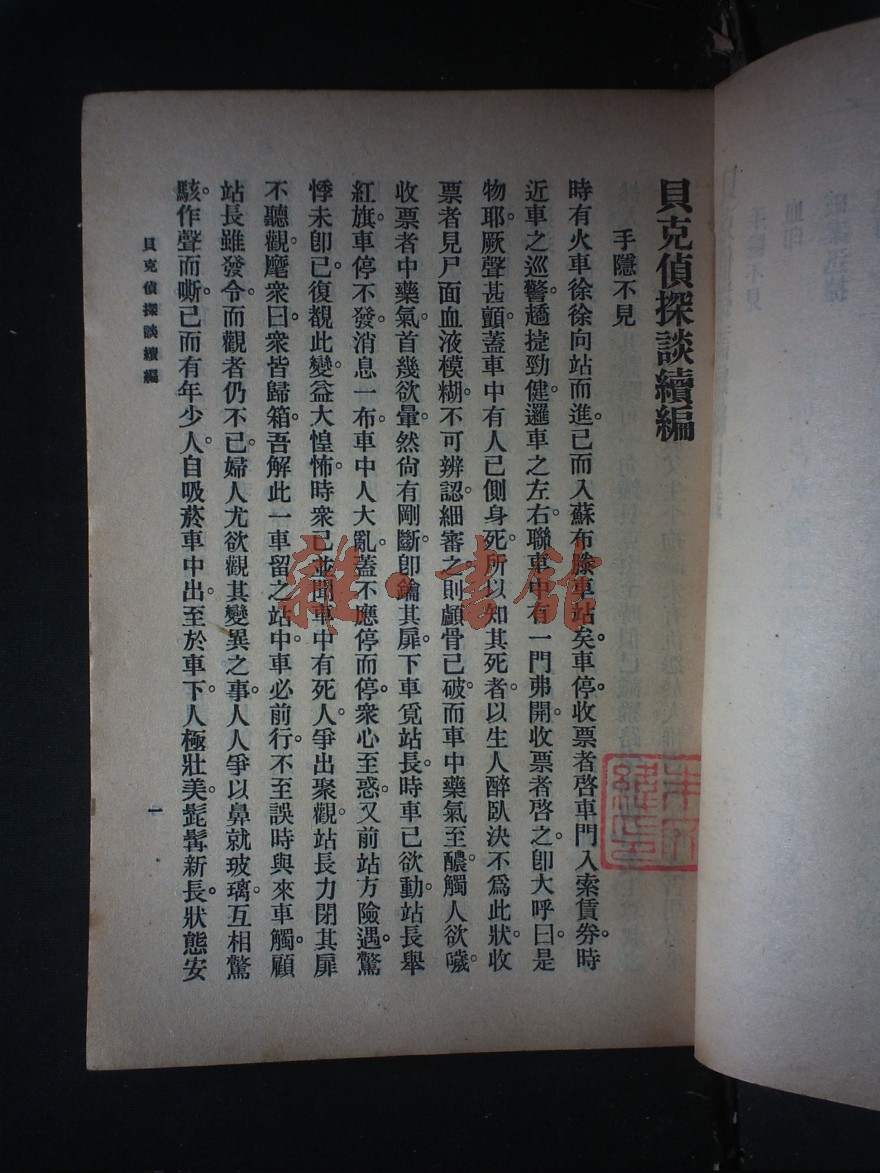 貝克偵探談續編
手隱不見
時有火車徐徐向站而進。已而入蘇布滕車站矣。車停。收票者啓車門入索賃券。時
近車之巡警。趫捷勁健。邏車之左右。聯車中有一門弗開。收票者啓之。卽大呼曰。是
物耶。厥聲甚顫。蓋車中有人已側身死。所以知其死者。以生人醉臥決不爲此狀。收
票者見尸面血液模糊。不可辨認。細審之則顱骨已破。而車中藥氣至醲。觸人欲噦。
收票者中藥氣。首幾欲暈。然尙有剛斷。卽鑰其扉。下車覓站長。時車已欲動。站長舉
紅旗。車停不發。消息一布。車中人大亂。蓋不應停而停。衆心至惑。又前站方險遇。驚
悸未卽已。復覩此變。益大惶怖。時衆已並聞車中有死人。爭出聚觀。站長力閉其扉
不聽觀。麾衆曰。衆皆歸箱。吾解此一車留之站中。車必前行。不至誤時與來車觸。顧
站長雖發令。而觀者仍不已。婦人尤欲觀其變異之事。人人爭以鼻就玻璃。互相驚
駭。作聲而嘶。已而有年少人。自吸菸車中出。至於車下。人極壯美。髭髯新長。狀態安
貝克偵探談續編
一
雜·書館